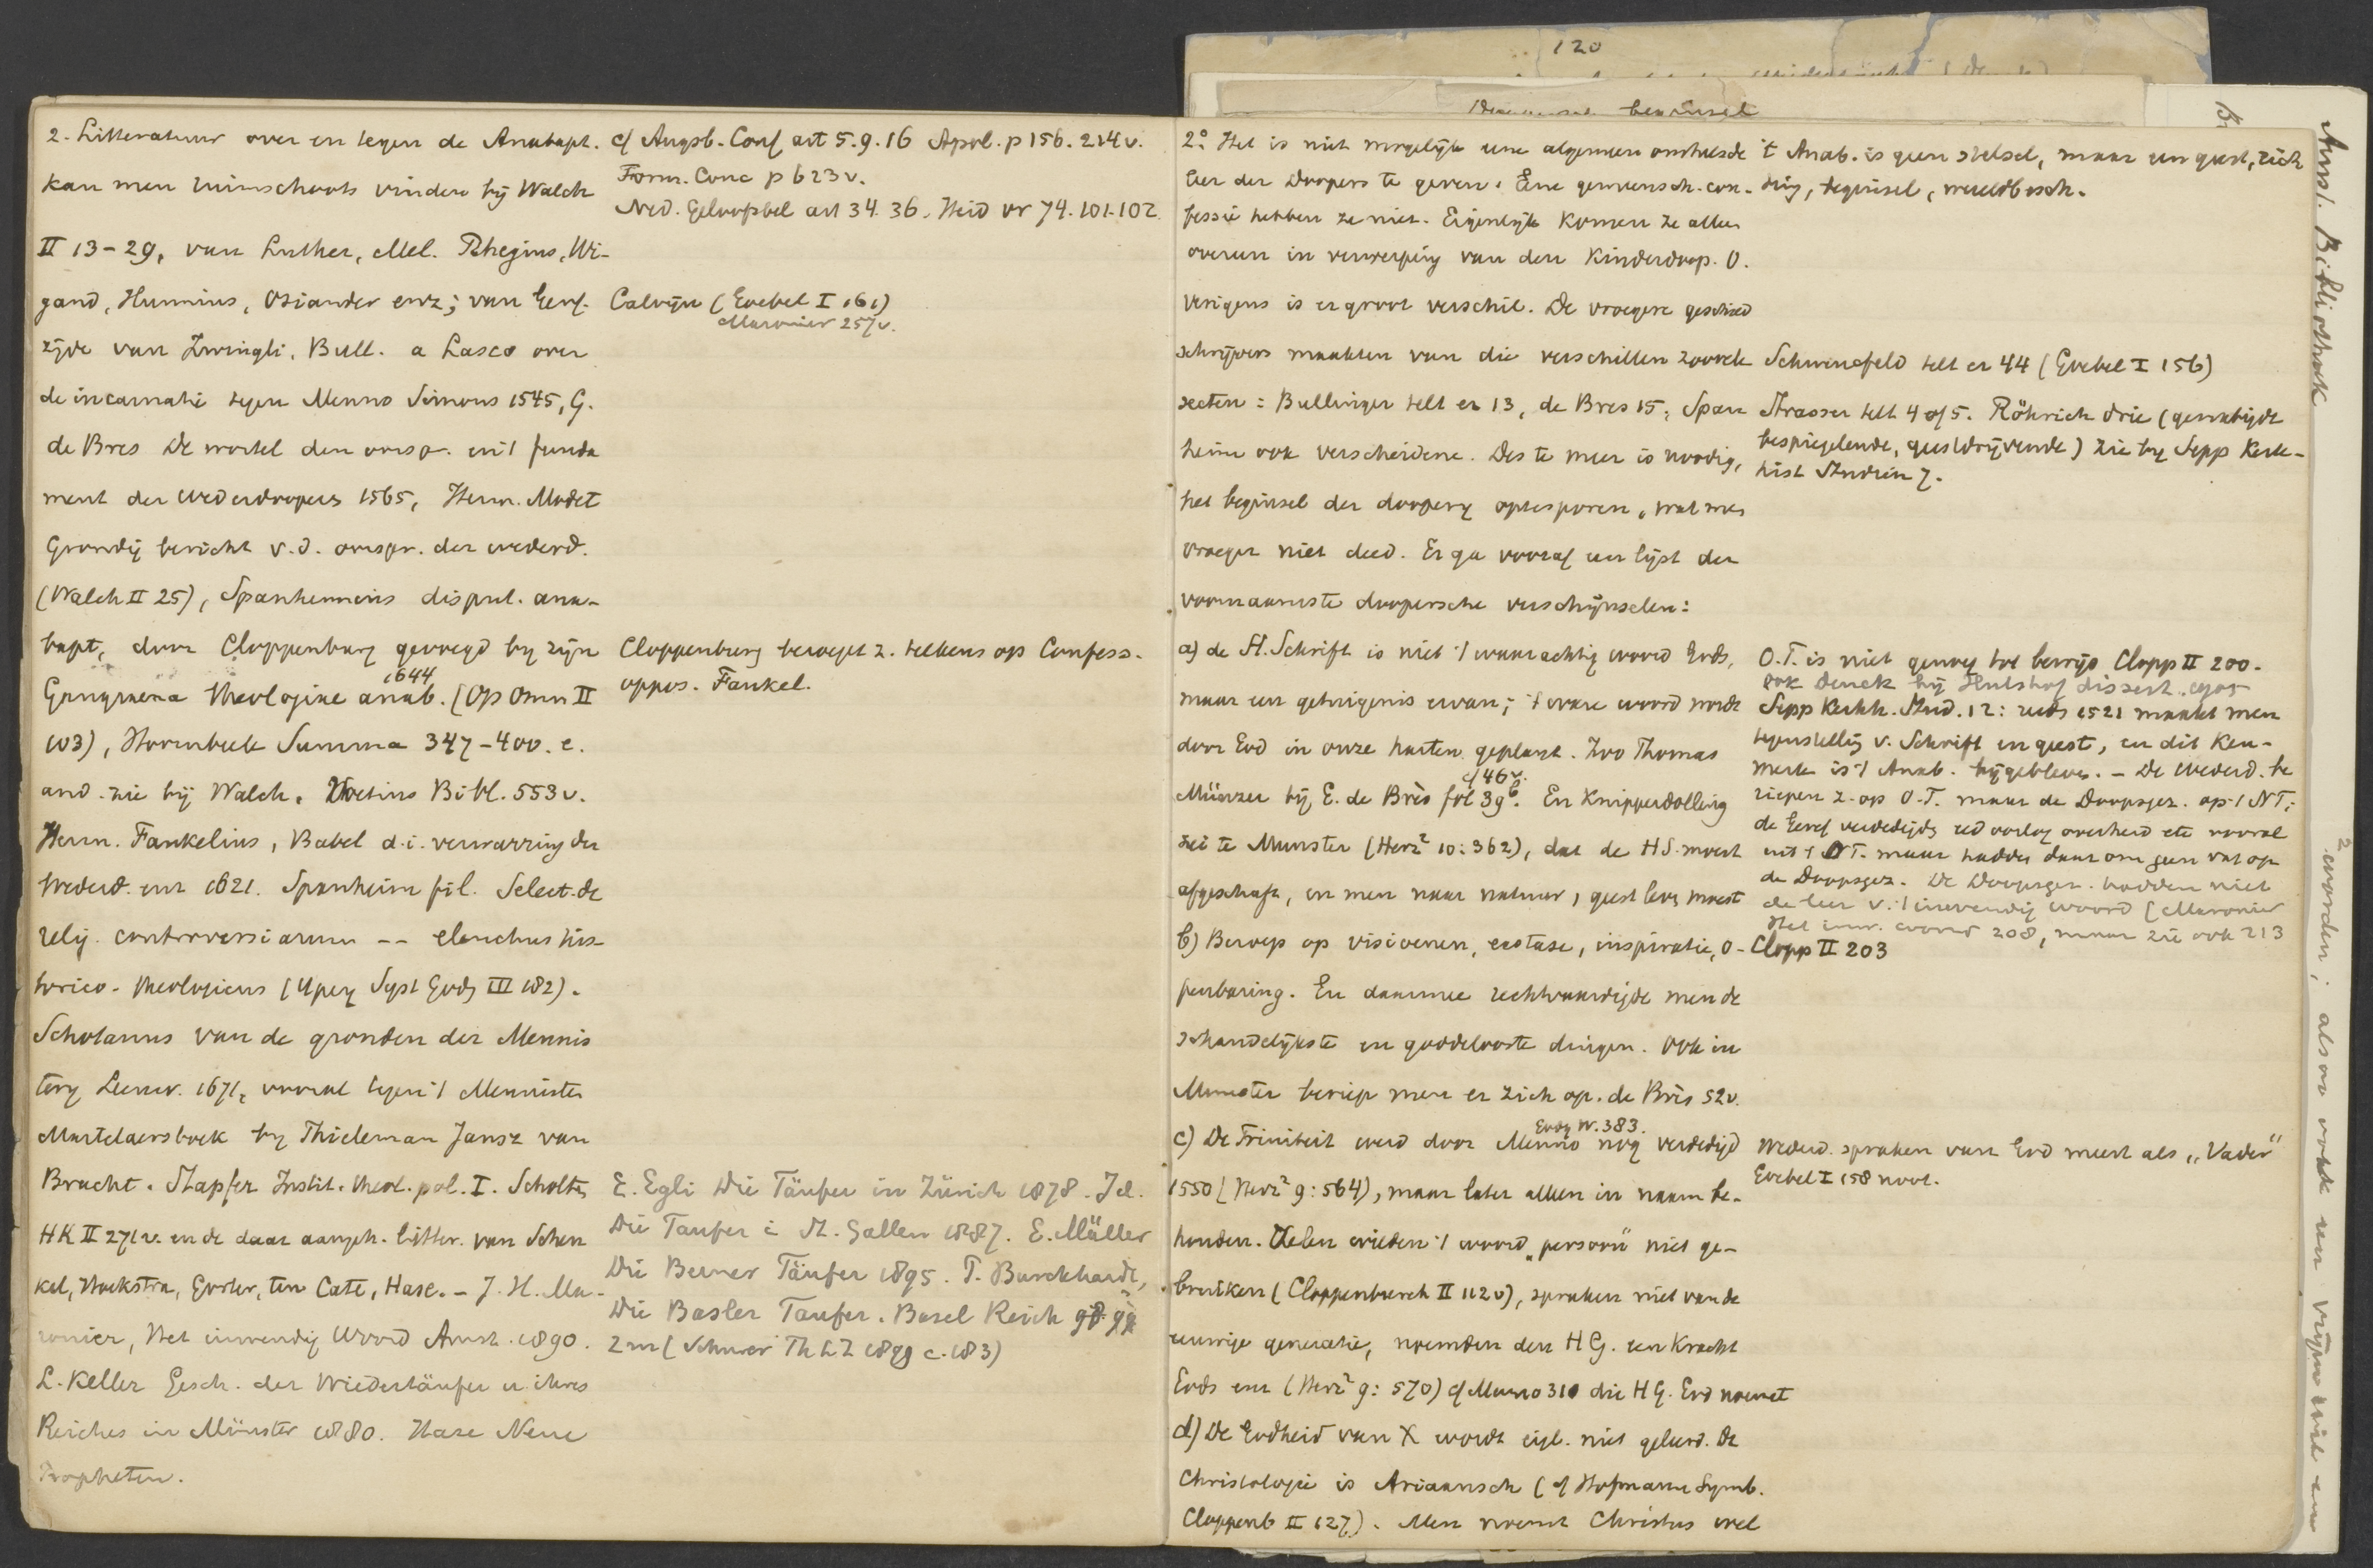 120
beginsel
2. Litteratuur over en tegen de Anabapt.
kan men ruimschoots vinden bij Walch
II 13-29, van Luther, Mel. Rhegius, Wi-
gand, Hunnius, Osiander enz; van Geref.
zijde van Zwingli, Bull. a Lasco over
de incarnatie tegen Menno Simons 1545, G.
de Bres De wortel den oorspr. en 't funda
ment der Wederdoopers 1565, Herm. Modet
Grondig bericht v.d. oorspr. der wederd.
(Walch II 25), Spanhemius disput. ana-
bapt, door Cloppenburg gevoegd bij zijn
1644
Gangraena theologiae anab. (Op Omn II
103), Hoornbeek Summa 347-400. e.
and. zie bij Walch. Voetius Bibl. 553v.
Herm. Faukelius, Babel d.i. verwarring der
Wederd. enz 1621. Spanheim fil. Select. de
relig. controversiarum -- elenchus his-
torico-theologicus (Ypeij Syst Godg III 182).
Schotanus van de gronden der Mennis
terij Leeuw. 1671, vooral tegen 't Mennisten
Martelaersboek bij Thieleman Jansz van
Bracht. Stapfer Instit. theol. pol. I. Scholten
HK II 271v. en de daar aangeh. litter. van Schen
kel, Hoekstra, Gorter, ten Cate, Hase. - J. H. Ma-
ronier, Het inwendig Woord Amst. 1890.
L. Keller Gesch. der Wiedertäufer u. ihres
Reiches in Münster 1880. Hase Neue
Propheten.
cf Augsb. Conf art 5.9.16 Apol. p 156. 214v.
Form. Conc p 623v.
Ned. Geloofsbel art 34. 36. Heid vr 74. 101-102
Calvijn (Goebel I 161)
Maronier 257v.
Cloppenburg beroept z. telkens op Confess.
oppos. Faukel.
E. Egli Die Täufer in Zürich 1878. Id.
Die Taufer i St. Gallen 1887. E. Müller
Die Berner Täufer 1895. P. Burckhardt,
Die Basler Taufer. Basel Reich
2m (Schurer Th LZ 1899 c. 183)
2° Het is niet mogelijk eene algemeen omtrekende
leer der Doopers te geven. Eene gemeensch. con-
fessie hebben ze niet. Eigenlijk komen ze allen
overeen in verwerping van den Kinderdoop. O-
verigens is er groot verschil. De vroegere geschied
schrijvers maakten van die verschillen zoovele
secten: Bullinger telt er 13, de Bres 15, Span
heim ook verscheidene. Des te meer is noodig,
het beginsel der dooperij optesporen, wat men
vroeger niet deed. Er ga vooraf een lijst der
voornaamste doopersche verschijnselen:
a) de H. Schrift is niet 't waarachtig woord Gods,
maar een getuigenis ervan; 't ware woord wordt
door God in onze harten geplant. Zoo Thomas
cf 46v.
Münzer bij G. de Brès fol 39b. En Knipperdolling
zei te Munster (Herz² 10:362), dat de HS. moest
afgeschaft, en men naar natuur, geest leven moest
b) Beroep op visioenen, ecstase, inspiratie, o-
penbaring. En daarmee rechtvaardigde men de
schandelijkste en goddelooste dingen. Ook in
Munster beriep men er zich op. de Brès 52v.
Godg W. 383.
c) De Triniteit werd door Menno nog verdedigd
1550 (Herz² 9:564), maar later alleen in naam be-
houden. Velen wilden 't woord „persoon" niet ge-
bruiken (Cloppenburch II 112v), spraken niet van de
eeuwige generatie, noemden den HG. een Kracht
Gods enz (Herz² 9: 570) cf Menno 310 die HG. God noemt
d) De Godheid van X wordt eigl. niet geleerd. De
Christologie is Ariaansch (cf Hofmann Symb.
Cloppenb II 127). Men noemt Christus wel
't Anab. is geen stelsel, maar een geest, rich
ting, beginsel, wereldbesch.
Schwencfeld telt er 44 (Goebel I 156)
Strasser telt 4 of 5. Röhrich drie (gematigde
bespiegelende, geestdrijvende) zie bij Sepp Kerk-
hist Studien 7.
O.T. is niet genoeg tot bewijs Clopp II 200.
ook Denck bij Hulshof dissert.
Sepp Kerkh. Stud. 12: reeds 1521 maakt men
tegenstelling v. Schrift en geest, en dit ken-
merk is 't Anab. bijgebleven. - De Wederd. be
riepen z. op O.T. maar de Doopsgez. op 't NT;
de Geref verdedigde eed oorlog overheid etc vooral
uit 't OT. maar hadden daarom geen vat op
de Doopsgez. De Doopsgez. hadden niet
de leer v. 't inwendig woord (Maronier
Het inw. woord 208, maar zie ook 213
Clopp II 203
Wederd. spraken van God meest als „Vader"
Goebel I 158 noot.
Amst. Bibliotheek
2. worden; alsoo ook een vrijen wil en